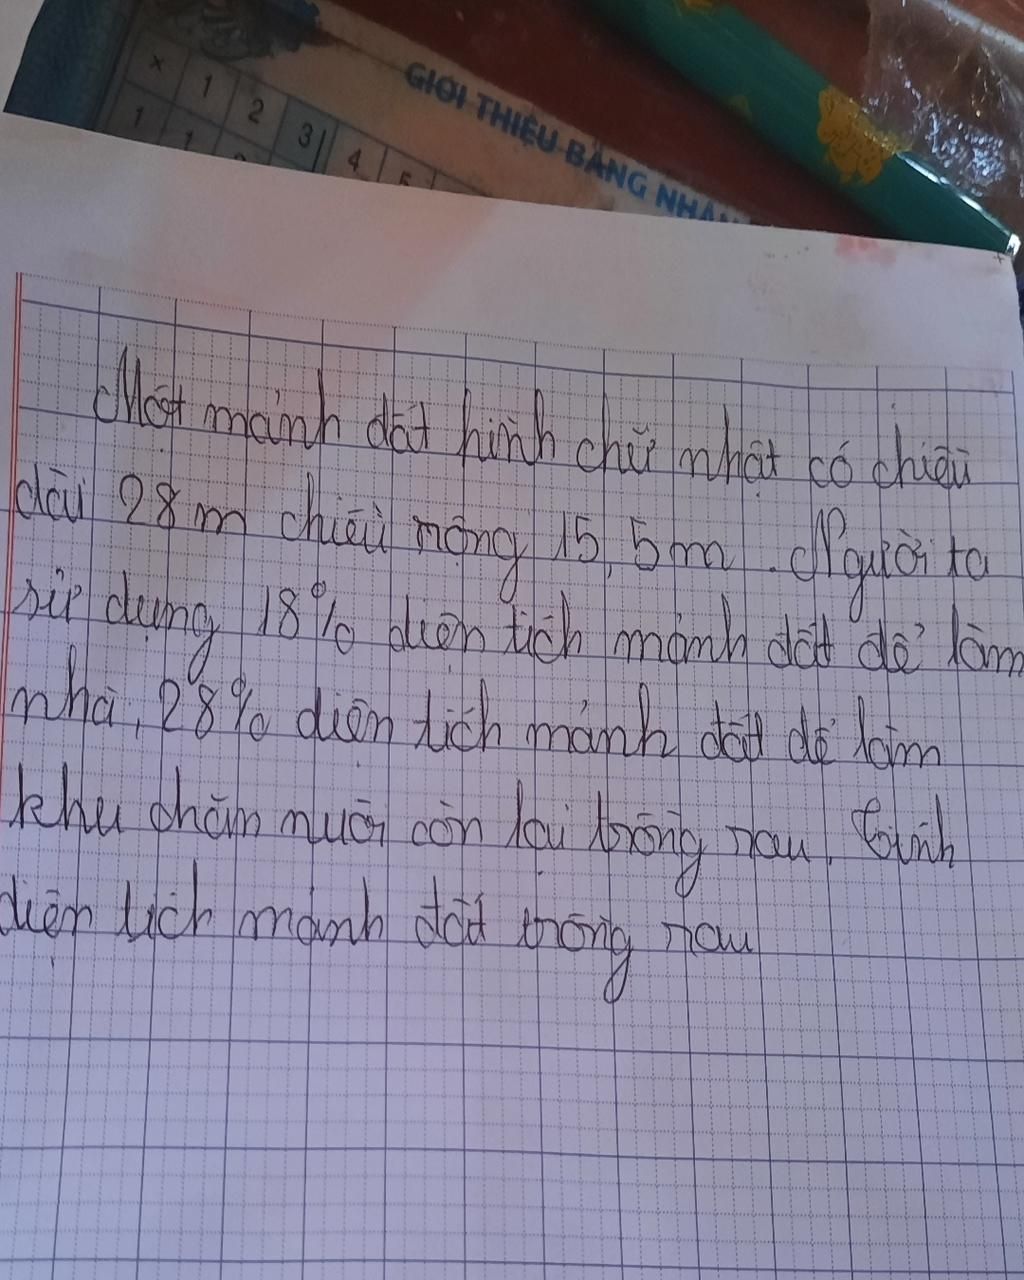 × 1 2 3 4 5
1 1
GIỚI THIỆU BẢNG NHÂN
Một mảnh đất hình chữ nhật có chiều
dài 28m chiều rộng 15,5m. Người ta
sử dụng 18% diện tích mảnh đất để làm
nhà, 28% diện tích mảnh đất để làm
khu chăn nuôi còn lại trồng rau. Tính
diện tích mảnh đất trồng rau